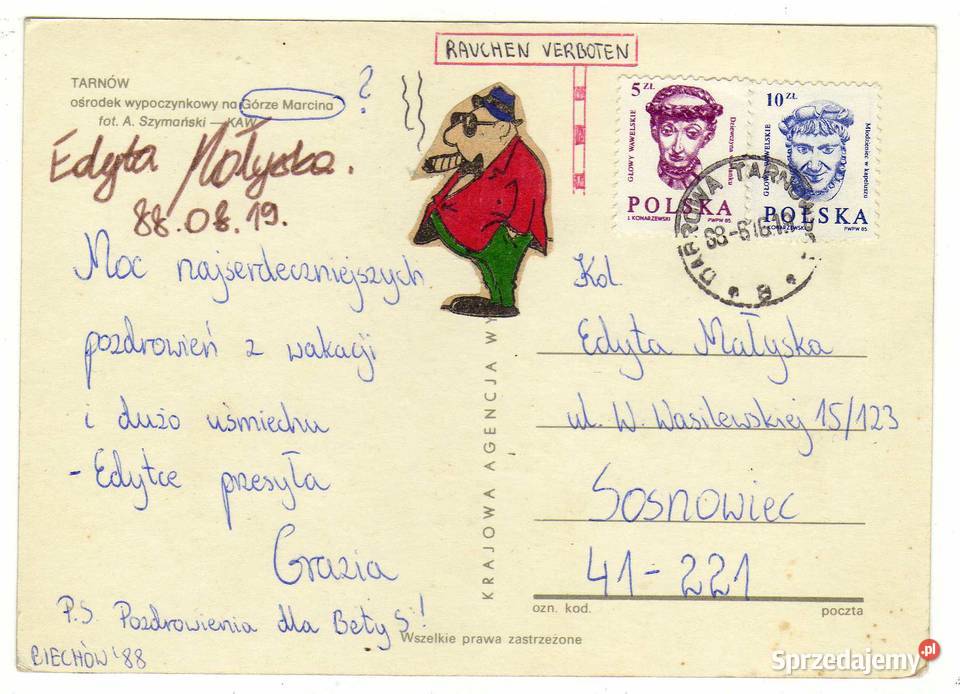 RAUCHEN VERBOTEN
TARNÓW
ośrodek wypoczynkowy na Górze Marcina ?
fot. A. Szymański — KAW
Edyta Małyska.
88.08.19.
Moc najserdeczniejszych
pozdrowień z wakacji
i dużo uśmiechu
- Edytce przesyła
Grazia
P.S Pozdrowienia dla Bety S!
BIECHÓW '88
KRAJOWA AGENCJA WY
Wszelkie prawa zastrzeżone
5 ZŁ
GŁOWY WAWELSKIE
Dziewczyna
POLSKA
J. KONARZEWSKI PWPW 85
10 ZŁ
GŁOWY WAWELSKIE
Młodzieniec w kapeluszu
POLSKA
KONARZEWSKI PWPW 85
DĄBROWA TARN
B
Kol.
Edyta Małyska
ul. W. Wasilewskiej 15/123
Sosnowiec
41-221
ozn. kod. poczta
Sprzedajemy.pl